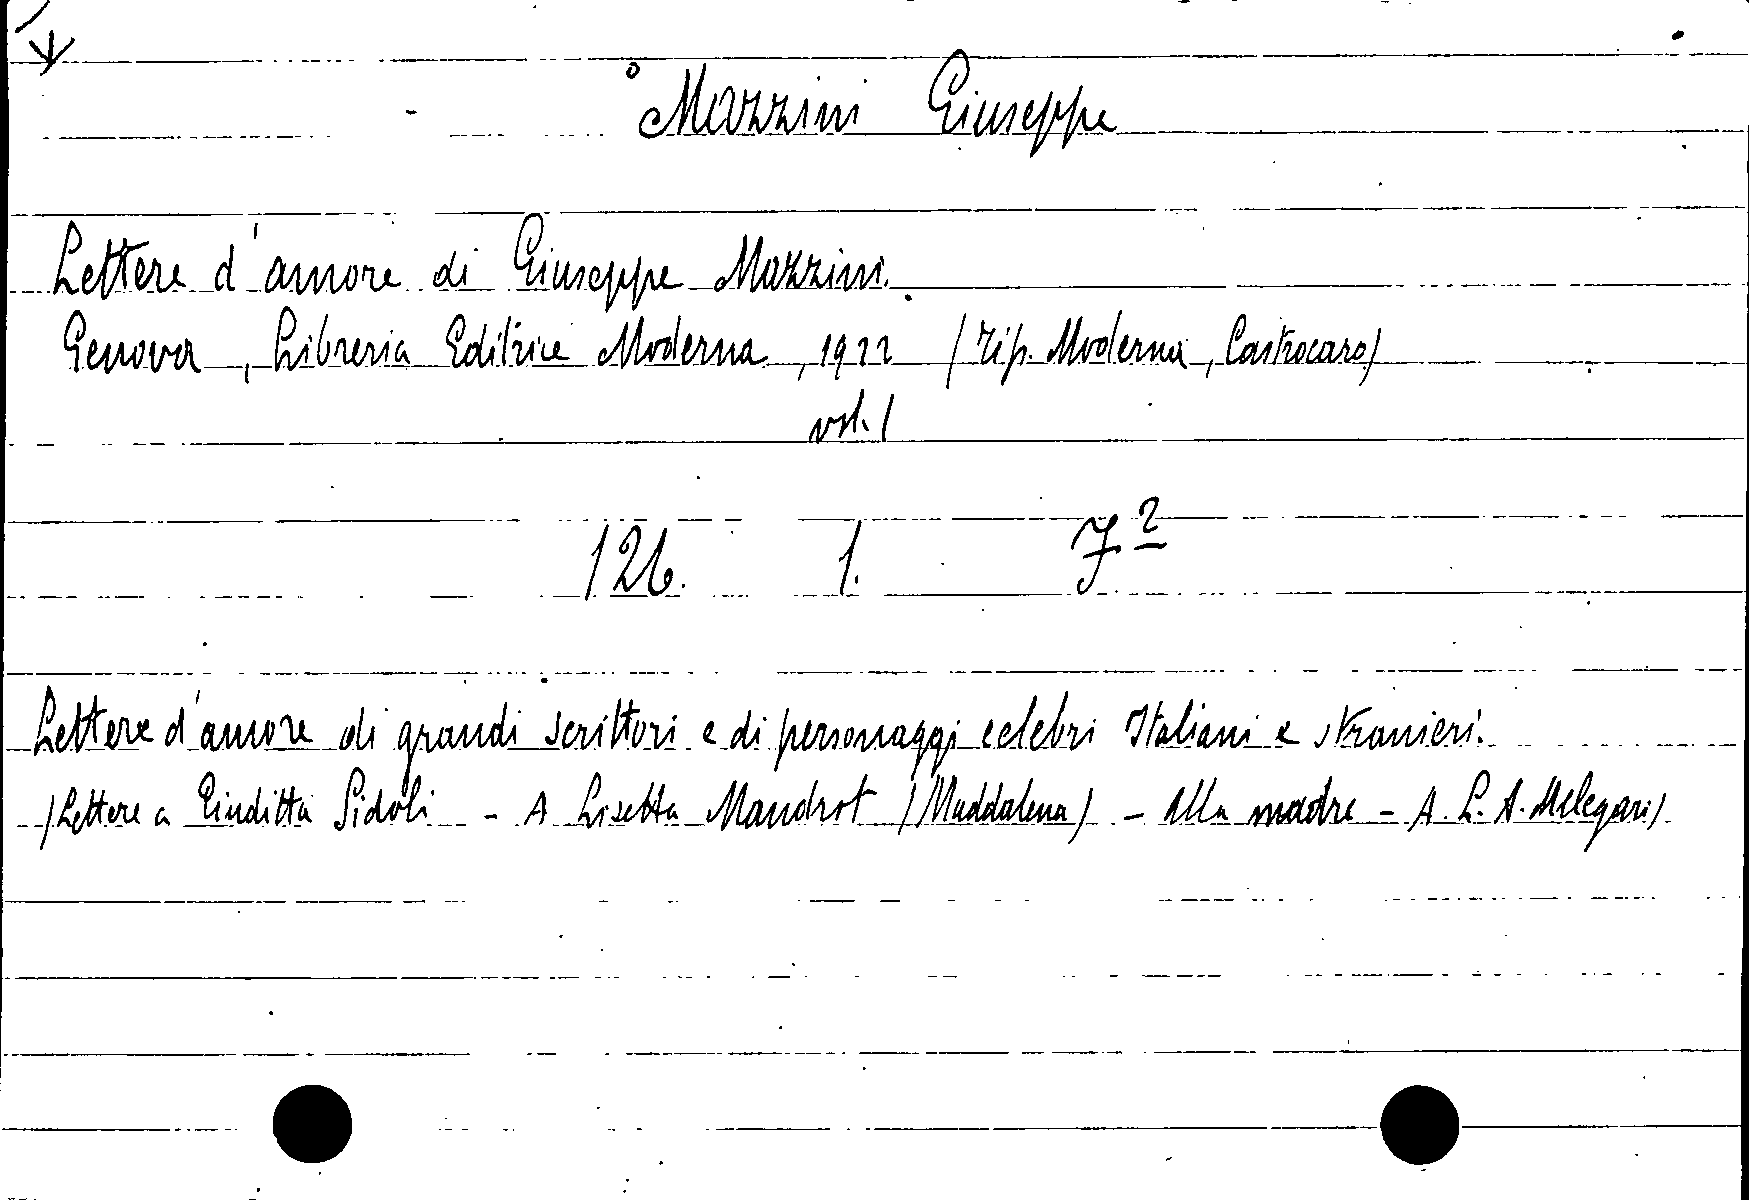 ° Mazzini Giuseppe
Lettere d'amore di Giuseppe Mazzini.
Genova, Libreria Editrice Moderna, 1922 (Tip. Moderna, Castrocaro)
vol. 1
126. 1. F²
Lettere d'amore di grandi scrittori e di personaggi celebri Italiani e stranieri.
(Lettere a Giuditta Sidoli - A Lisetta Mandrot (Maddalena) - Alla madre - A. L. A. Melegari)